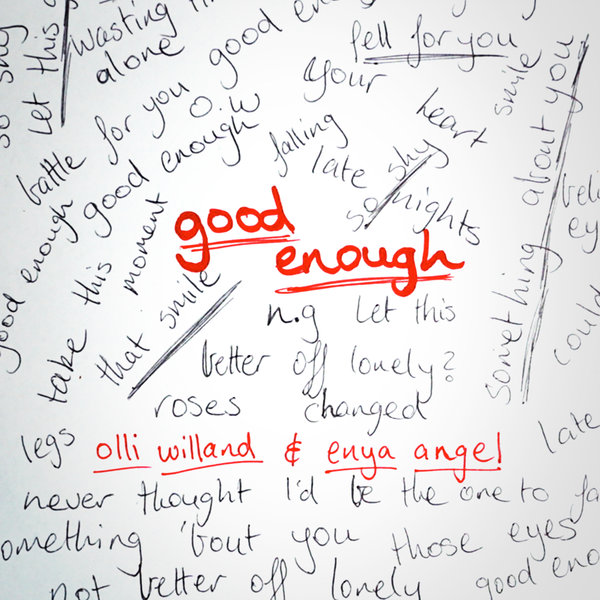 so shy
Let this
wasting
alone
good enough
fell for you
battle for you
O.W
your
heart
smile
good enough
falling
late
so shy
nights
something about you
good enough
take this moment
that smile
good
enough
eyes
could
n.g Let this
better off lonely?
roses changed
legs
olli willand & enya angel
late
never thought I'd be the one to fa
omething 'bout you those eyes
not better off lonely good eno